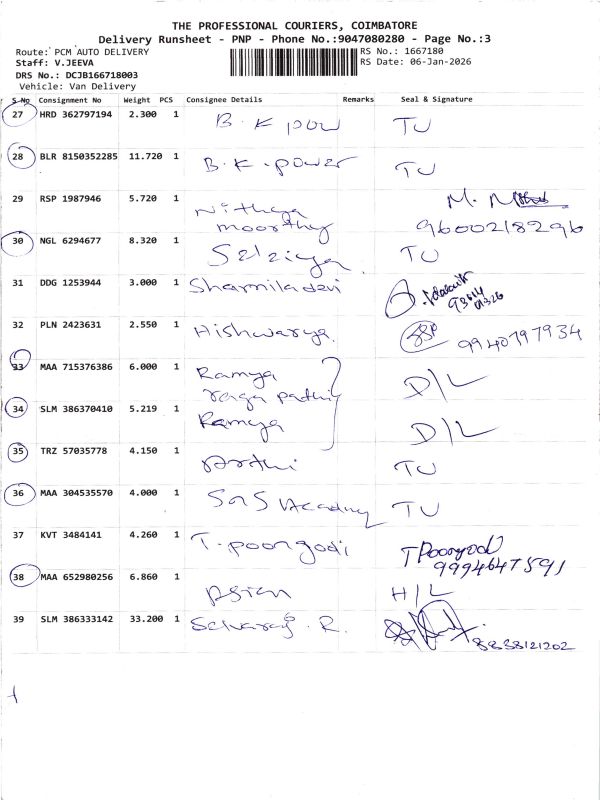 THE PROFESSIONAL COURIERS, COIMBATORE
Delivery Runsheet - PNP - Phone No.:9047080280 - Page No.:3
Route: PCM AUTO DELIVERY RS No.: 1667180
Staff: V.JEEVA RS Date: 06-Jan-2026
DRS No.: DCJB166718003
Vehicle: Van Delivery
S No Consignment No Weight PCS Consignee Details Remarks Seal & Signature
27 HRD 362797194 2.300 1 B.K pow TU
28 BLR 8150352285 11.720 1 B.K.power TU
29 RSP 1987946 5.720 1 Nithya M.
moorthy 9600218296
30 NGL 6294677 8.320 1 TU
31 DDG 1253944 3.000 1 Sharmiladevi
32 PLN 2423631 2.550 1 Aishwarya. 9940797934
33 MAA 715376386 6.000 1 Ramya D/L
34 SLM 386370410 5.219 1 Ramya D/L
35 TRZ 57035778 4.150 1 Arthi TU
36 MAA 304535570 4.000 1 SNS Academy TU
37 KVT 3484141 4.260 1 T.poongodi T Poongodi
9994647591
38 MAA 652980256 6.860 1 Asian H/L
39 SLM 386333142 33.200 1 Selvaraj.R. 8838121202